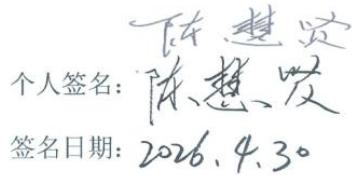 陈慧贤
个人签名：陈慧贤
签名日期：2026.4.30